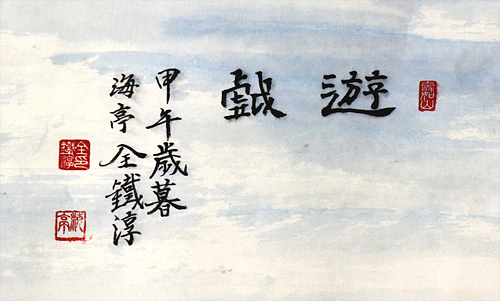 遊戱
甲午歲暮
海亭全鐵淳